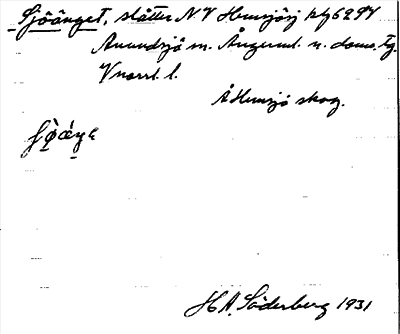 Sjöänget, slåtter NV Hemsjösj kbl 6294
Anundsjö sn. Ångerml. n. doms. tg.
Vnorrl. l.
Å Hemsjö skog.
H A. Söderberg 1931